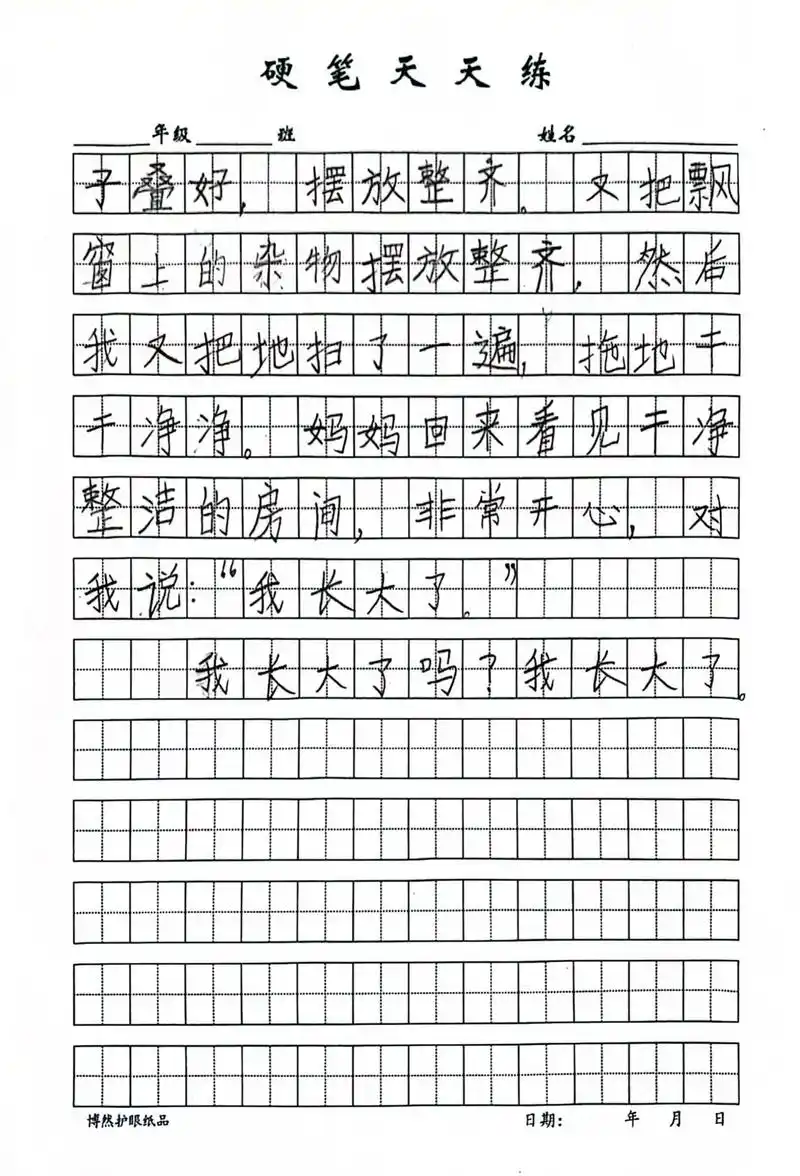 硬笔天天练
年级 班 姓名
子叠好，摆放整齐。又把飘
窗上的杂物摆放整齐，然后
我又把地扫了一遍，拖地干
干净净。妈妈回来看见干净
整洁的房间，非常开心，对
我说：“我长大了。”
我长大了吗？我长大了。
博然护眼纸品 日期： 年 月 日